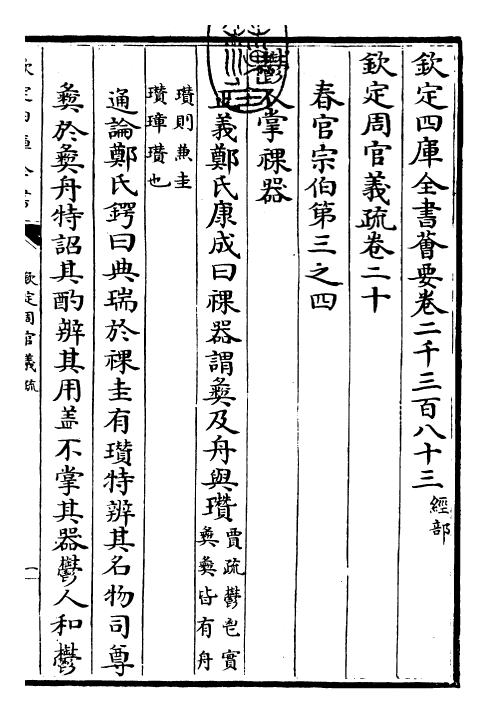 欽定四庫全書薈要卷二千三百八十三 經部
欽定周官義疏卷二十
春官宗伯第三之四
鬱人掌祼器
正義鄭氏康成曰祼器謂彝及舟與瓚賈疏鬱鬯實
彝彝皆有舟
瓚則兼圭
瓚璋瓚也
通論鄭氏鍔曰典瑞於祼圭有瓚特辨其名物司尊
彝於彝舟特詔其酌辨其用盖不掌其器鬱人和鬱
欽定四庫全書
欽定周官義疏
一